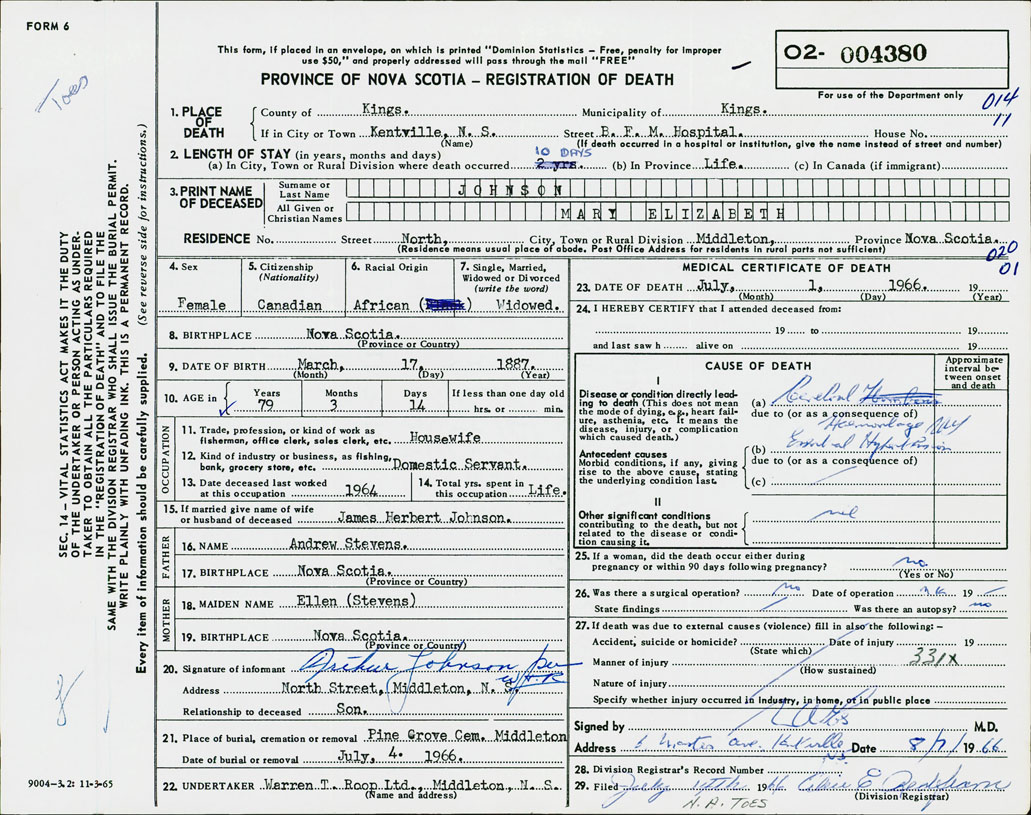 FORM 6
This form, if placed in an envelope, on which is printed "Dominion Statistics – Free, penalty for improper
use $50," and properly addressed will pass through the mail "FREE"
PROVINCE OF NOVA SCOTIA – REGISTRATION OF DEATH
02- 004380
For use of the Department only
014
11
Toes
1. PLACE OF DEATH
County of Kings. Municipality of Kings.
If in City or Town Kentville, N. S. Street B. F. M. Hospital. House No.
(Name) (If death occurred in a hospital or institution, give the name instead of street and number)
2. LENGTH OF STAY (in years, months and days)
10 DAYS
(a) In City, Town or Rural Division where death occurred 2 yrs. (b) In Province Life. (c) In Canada (if immigrant)
3. PRINT NAME OF DECEASED
Surname or Last Name JOHNSON
All Given or Christian Names MARY ELIZABETH
RESIDENCE No. Street North, City, Town or Rural Division Middleton, Province Nova Scotia.
(Residence means usual place of abode. Post Office Address for residents in rural parts not sufficient)
020
01
4. Sex
Female
5. Citizenship
(Nationality)
Canadian
6. Racial Origin
African (
)
7. Single, Married,
Widowed or Divorced
(write the word)
Widowed.
8. BIRTHPLACE Nova Scotia.
(Province or Country)
9. DATE OF BIRTH March, 17, 1887.
(Month) (Day) (Year)
10. AGE in
Years Months Days If less than one day old
79 3 14 hrs. or min.
OCCUPATION
11. Trade, profession, or kind of work as
fisherman, office clerk, sales clerk, etc. Housewife
12. Kind of industry or business, as fishing,
bank, grocery store, etc. Domestic Servant.
13. Date deceased last worked
at this occupation 1964
14. Total yrs. spent in
this occupation Life.
15. If married give name of wife
or husband of deceased James Herbert Johnson.
FATHER
16. NAME Andrew Stevens.
17. BIRTHPLACE Nova Scotia.
(Province or Country)
MOTHER
18. MAIDEN NAME Ellen (Stevens)
19. BIRTHPLACE Nova Scotia.
(Province or Country)
20. Signature of informant Arthur Johnson per
W.T.R
Address North Street, Middleton, N. S.
Relationship to deceased Son.
21. Place of burial, cremation or removal Pine Grove Cem. Middleton
Date of burial or removal July, 4. 1966.
22. UNDERTAKER Warren T. Roop Ltd., Middleton, N. S.
(Name and address)
MEDICAL CERTIFICATE OF DEATH
23. DATE OF DEATH July, 1, 1966. 19
(Month) (Day) (Year)
24. I HEREBY CERTIFY that I attended deceased from:
19 to 19
and last saw h alive on 19
CAUSE OF DEATH
Approximate
interval be-
tween onset
and death
I
Disease or condition directly lead-
ing to death (This does not mean
the mode of dying, e.g., heart fail-
ure, asthenia, etc. It means the
disease, injury, or complication
which caused death.)
(a) Cerebral
due to (or as a consequence of)
Haemorrhage
Antecedent causes
Morbid conditions, if any, giving
rise to the above cause, stating
the underlying condition last.
(b) Essential Hypertension
due to (or as a consequence of)
(c)
II
Other significant conditions
contributing to the death, but not
related to the disease or condi-
tion causing it.
nil
25. If a woman, did the death occur either during
pregnancy or within 90 days following pregnancy? no
(Yes or No)
26. Was there a surgical operation? no Date of operation 19
State findings Was there an autopsy? no
27. If death was due to external causes (violence) fill in also the following: –
Accident, suicide or homicide? Date of injury 19
(State which)
Manner of injury 331X
(How sustained)
Nature of injury
Specify whether injury occurred in industry, in home, or in public place
Signed by M.D.
Address Ave. Kentville N.S. Date 8/7/1966
28. Division Registrar's Record Number
29. Filed July 1966
(Division Registrar)
N. A. TOES
SEC. 14 – VITAL STATISTICS ACT MAKES IT THE DUTY
OF THE UNDERTAKER OR PERSON ACTING AS UNDER-
TAKER TO OBTAIN ALL THE PARTICULARS REQUIRED
IN THE "REGISTRATION OF DEATH" AND TO FILE THE
SAME WITH THE DIVISION REGISTRAR WHO SHALL ISSUE THE BURIAL PERMIT.
WRITE PLAINLY WITH UNFADING INK. THIS IS A PERMANENT RECORD.
Every item of information should be carefully supplied. (See reverse side for instructions.)
9004–3.2: 11-3-65